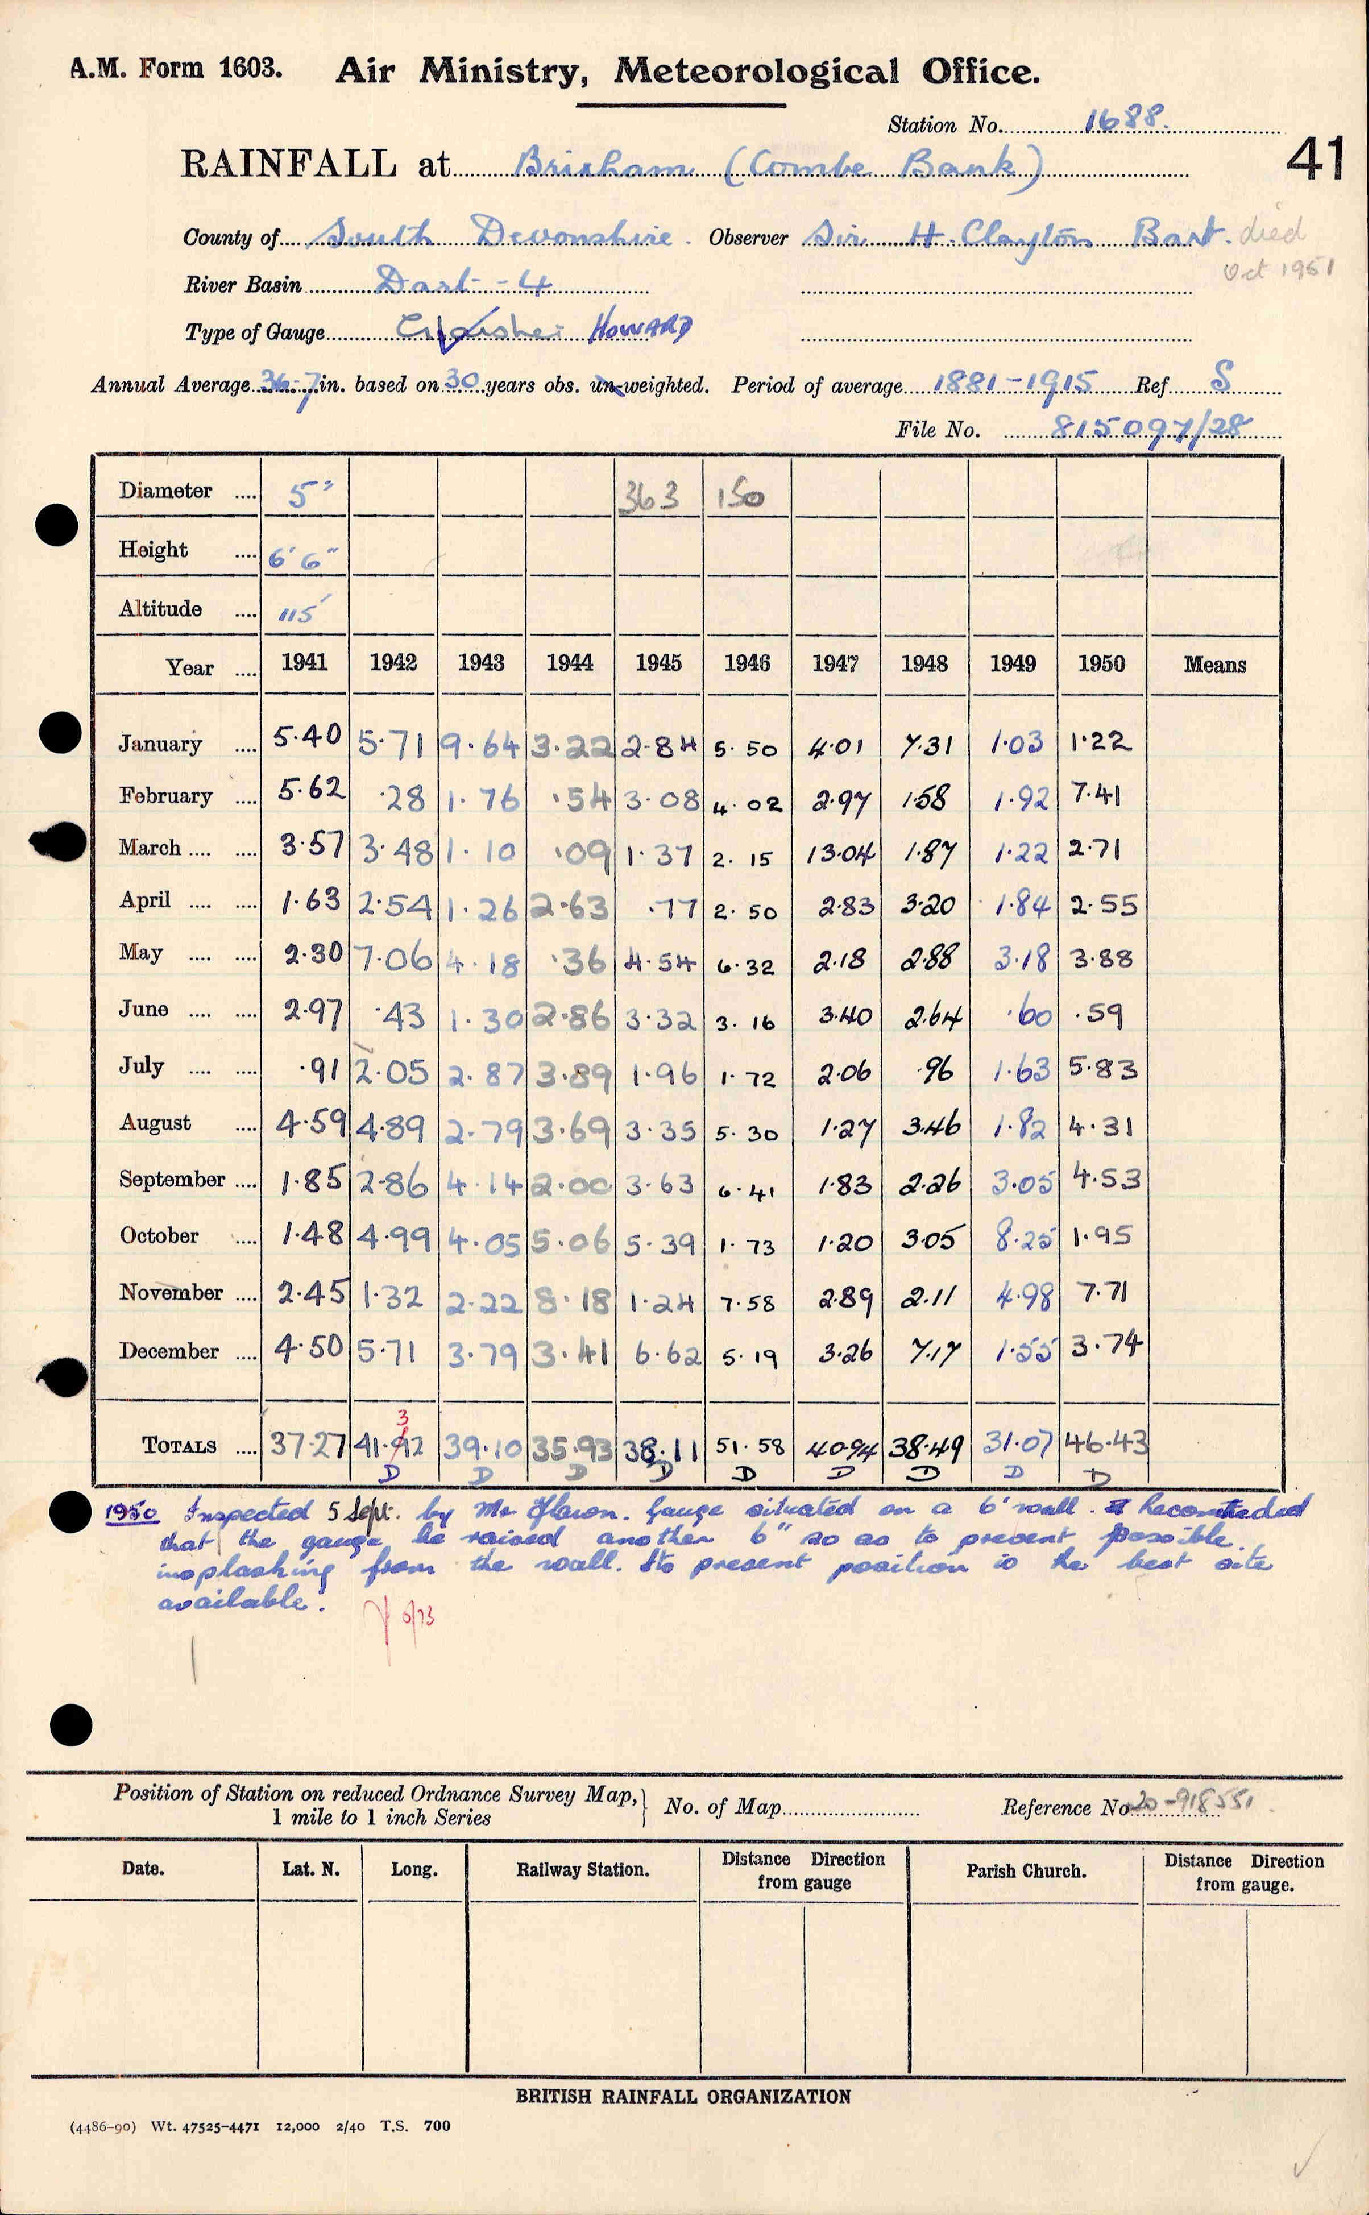 A.M. Form 1603. Air Ministry, Meteorological Office.
Station No. 1688.
41
RAINFALL at Brixham (Combe Bank)
County of South Devonshire. Observer Sir H. Clayton Bart. died
Oct 1951
River Basin Dart - 4
Type of Gauge Glaisher HOWARD
Annual Average 36.7 in. based on 30 years obs. un-weighted. Period of average 1881-1915 Ref S
File No. 815097/28
Diameter .... 5" 363 150
Height .... 6'6"
Altitude .... 115'
Year .... 1941 1942 1943 1944 1945 1946 1947 1948 1949 1950 Means
January .... 5.40 5.71 9.64 3.22 2.84 5.50 4.01 7.31 1.03 1.22
February .... 5.62 .28 1.76 .54 3.08 4.02 2.97 1.58 1.92 7.41
March .... .... 3.57 3.48 1.10 .09 1.37 2.15 13.04 1.87 1.22 2.71
April .... .... 1.63 2.54 1.26 2.63 .77 2.50 2.83 3.20 1.84 2.55
May .... .... 2.30 7.06 4.18 .36 4.54 6.32 2.18 2.88 3.18 3.88
June .... .... 2.97 .43 1.30 2.86 3.32 3.16 3.40 2.64 .60 .59
July .... .... .91 2.05 2.87 3.89 1.96 1.72 2.06 .96 1.63 5.83
August .... 4.59 4.89 2.79 3.69 3.35 5.30 1.27 3.46 1.82 4.31
September .... 1.85 2.86 4.14 2.00 3.63 6.41 1.83 2.26 3.05 4.53
October .... 1.48 4.99 4.05 5.06 5.39 1.73 1.20 3.05 8.25 1.95
November .... 2.45 1.32 2.22 8.18 1.24 7.58 2.89 2.11 4.98 7.71
December .... 4.50 5.71 3.79 3.41 6.62 5.19 3.26 7.17 1.55 3.74
3
TOTALS .... 37.27 41.92 39.10 35.93 38.11 51.58 40.94 38.49 31.07 46.43
D D D D D D D D D
1950 Inspected 5 Sept. by Mr. Gauge situated on a 6' wall. Recommended
that the gauge be raised another 6" so as to prevent possible
insplashing from the wall. Its present position is the best site
available.
Position of Station on reduced Ordnance Survey Map,
1 mile to 1 inch Series
No. of Map Reference No 20-918551
Date. Lat. N. Long. Railway Station. Distance Direction
from gauge Parish Church. Distance Direction
from gauge.
BRITISH RAINFALL ORGANIZATION
(4486-90) Wt. 47525-4471 12,000 2/40 T.S. 700